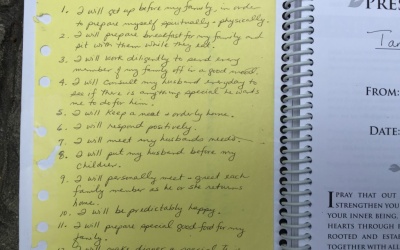 1. I will get up before my family, in order
to prepare myself spiritually + physically.
2. I will prepare breakfast for my family and
sit with them while they eat.
3. I will work diligently to send every
member of my family off in a good mood.
4. I will consult my husband everyday to
see if there is anything special he wants
me to do for him.
5. I will keep a neat + orderly home.
6. I will respond positively.
7. I will meet my husbands needs.
8. I will put my husband before my
children.
9. I will personally meet + greet each
family member as he or she returns
home.
10. I will be predictably happy.
11. I will prepare special good food for my
family.
12. I will make dinner a special
PRES
Tar
FROM:
DATE:
I PRAY THAT OUT
STRENGTHEN YOU
YOUR INNER BEING,
HEARTS THROUGH
ROOTED AND ESTAB
TOGETHER WITH ALL